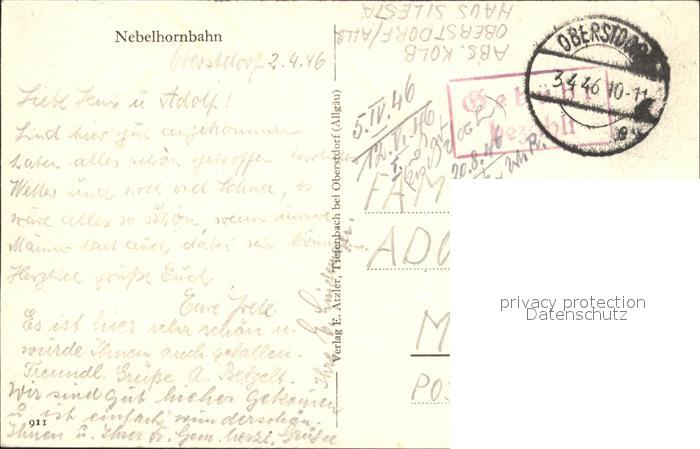 Nebelhornbahn
Oberstdorf 2.4.46
Liebe Leni u Adolf!
Sind hier gut angekommen
haben alles schön getroffen herrliches
Wetter und noch viel Schnee, es
wäre alles so schön, wenn unsere
Männer halt auch dabei sein könn
Herzlich grüße Euch
Eure Grete
Es ist hier sehr schön u.
würde Ihnen auch gefallen.
Freundl. Grüße A. Betzelt.
Wir sind gut hierher gekommen
u. ist einfach wunderschön.
Ihnen u. Ihrer Gem. herzl. Grüße
Ihre
911
Verlag E. Atzler, Tiefenbach bei Oberstdorf (Allgäu)
ABS. KOLB
OBERSTDORF/ALLG
HAUS SILESTA
5.IV.46
12.V.46
20.8.46
Gebühr
bezahlt
OBERSTDORF
3.4.46.10-11
e
FAM
ADO
M
POS
privacy protection
Datenschutz